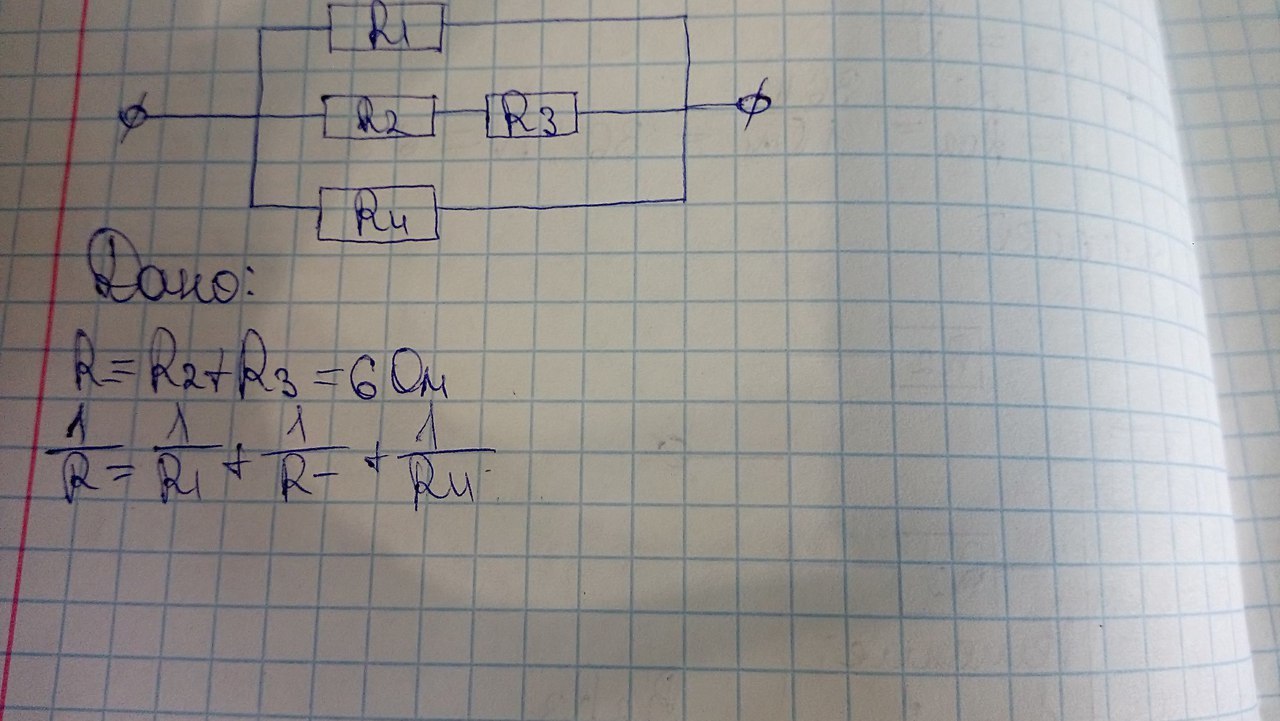 R1
R2 R3
R4
Дано:
R=R2+R3=6 Ом
1/R = 1/R1 + 1/R- + 1/R4